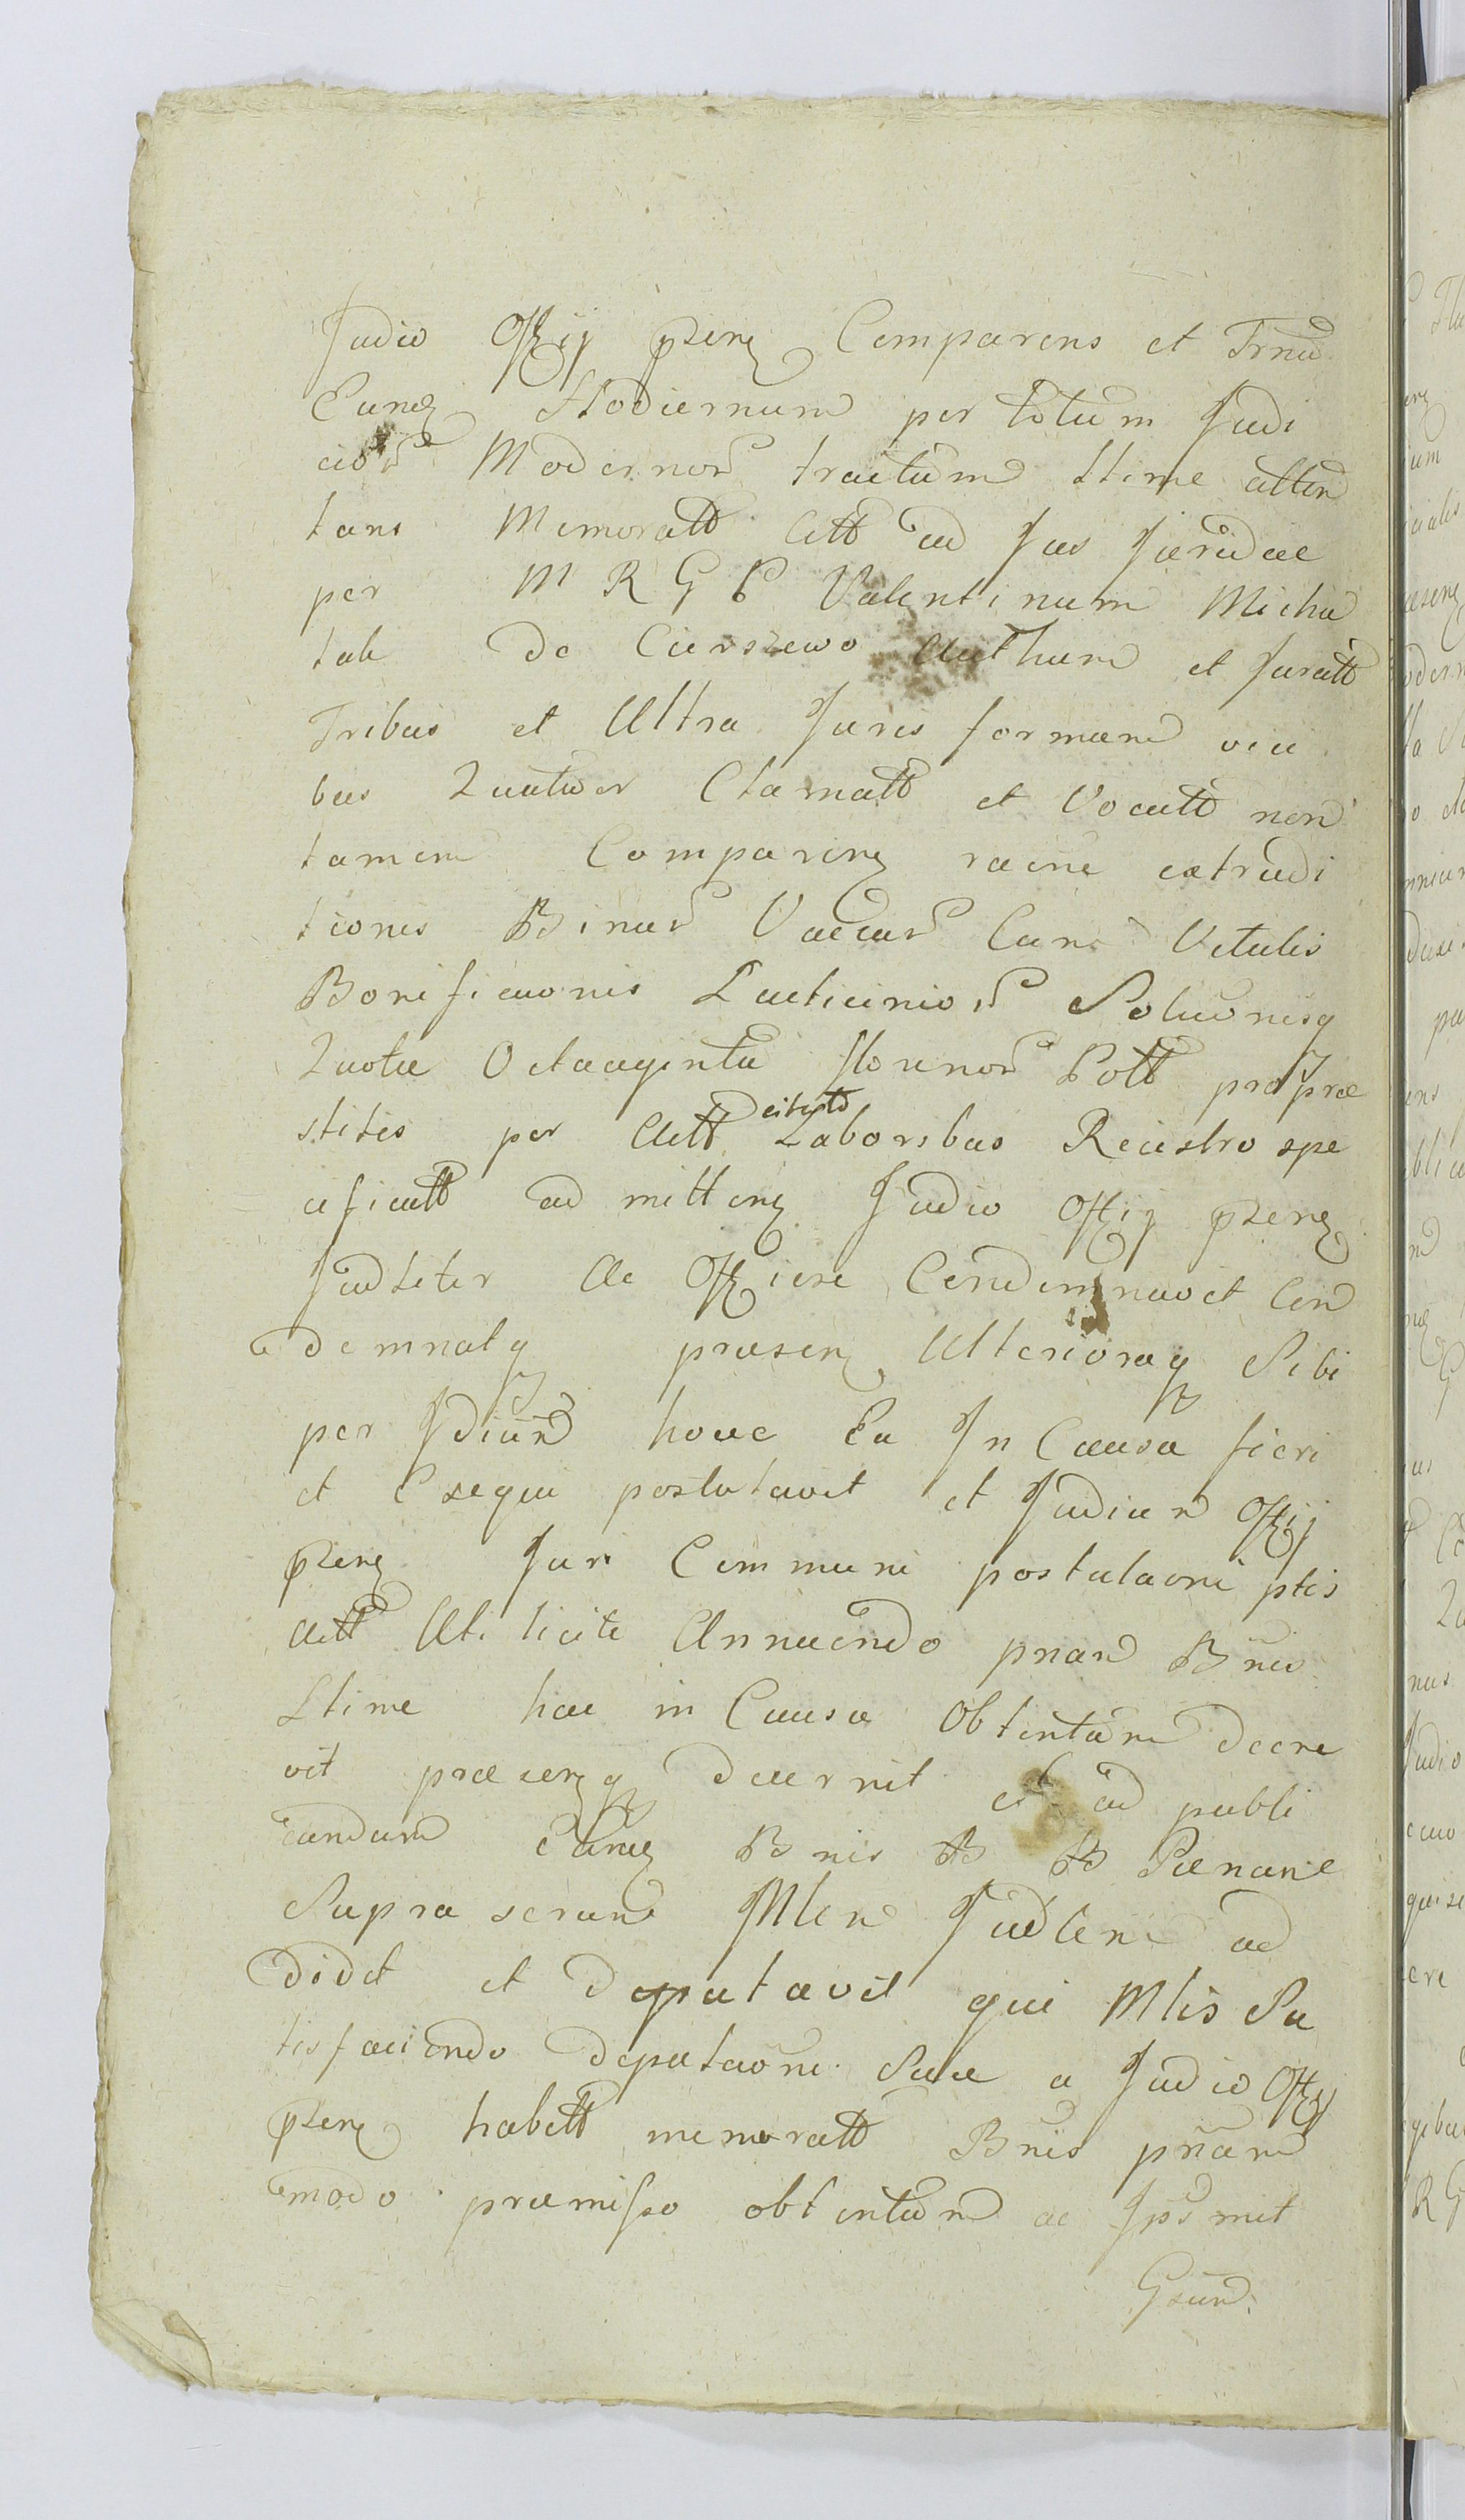 Judio Offij pseng Comparens et Trnu
Eund Hodiernum per totum Judi
cior Modernor tractum ltime atten
tans Memoratt Citt ad Jus Juridae
per M R G P Valentinum Micha
tale de Cierszewo Authum et Juratt
Tribus et Ultra Juris formam vici
bus Quatuor Clamatt et Vocatt non
tamem Comparing raone extradi
tionis Binar Vaccar Cum Vitulis
Bonificaonis Lacticinior Soluonisq
Quotae Octuaginta flornor Poll pro prae
stitis per Actt citatt Laboribus Reiestro spe
cificatt ad mitteng Judio Offij pseng
Judleter ac Officse Condemnavit Con
demnatq praeseng Ulterioraq Sibi
per Jdiun hocce Ea In Causa fieri
et Exequi postulavit et Judiun Offij
pseng Juri Communi postulaoni ptis
Actt Uti licite Annuendo pnan Bnis
ltime hac in Causa Obtentam decre
vit praeseng q decernit et ad publi
candam Eang Bnis B B Paenane
Supra scrane Mlem Judlem ad
didit et deputavit qui Mlis Sa
tisfaciendo deputaoni Suae a Judio Offij
pseng habitt memoratt Bnis pnam
modo praemisso obtentam ac Jps met
Gsund